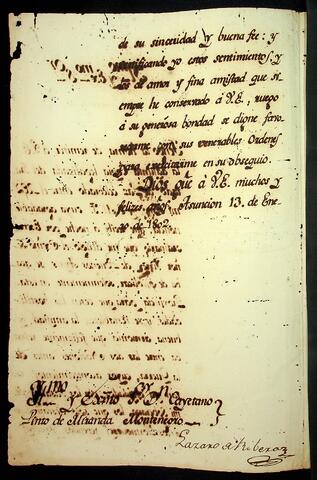 de su sinceridad y buena fee: y
ratificando yo estos sentimientos, y
de amor y fina amistad que si
empre he conservado à V.E., ruego
à su generosa bondad se digne favo
con sus venerables Ordenes
para exercitarme en su obsequio.
Dios gue à V.E. muchos y
felizes años Asuncion 13. de Ene
ro de 1802
Yllmo y Exmo Sor Dn Cayetano
Pinto de Miranda Montenegro
Lazaro de Ribera